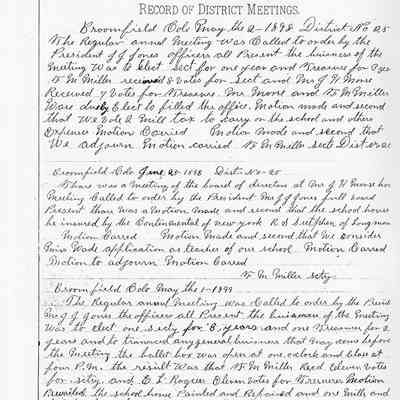 RECORD OF DISTRICT MEETINGS.
Broomfield Colo May the 2 - 1898 District No 25
The Regular annul Meeting was Called to order by the
President J J Jones officers all Present the buisness of the
Meeting Was to elect sect for one year and Treasure for
W M Miller received 8 votes for Sect and Mr J H Morse
Received 7 votes for Treasure. Mr Morse and W M Miller
Was duly Elect to filled the office. Motion made and second
that We Vote 2 Mill tax to carry on the school and others
Expence Motion Carried Motion Made and second that
We adjourn Motion carried W M Miller sect Dist 25
Broomfield Colo June 25 - 1898 Dist. No - 25
There was a meeting of the board of directors at Mr J H Morse
Meeting Called to order by the President Mr J J Jones full board
Present there was a Motion Made and second that the school house
be insured by the Continental of new york R S Sutphen of Longmon
Motion Carred Motion Made and second that We consider
Miss Wade application as teacher of our school Motion Carred
Motion to adjourn Motion Carred
W M Miller secty
Broomfield Colo May the 1 - 1899
The Regular annul Meeting was Called to order by the
Mr J J Jones the officers all Present the buisness of the Meeting
Was to elect one secty for 3 years and one Treasurer for 2
years and to transact any general buisness that may come before
the Meeting the ballot box was open at one oclock and close at
four P.M. the result was that W M Miller Recd Eleven votes
for secty. and E. L. Rogers Eleven Votes for Treasure Motion
the school house Painted and Repaired and one Mill and